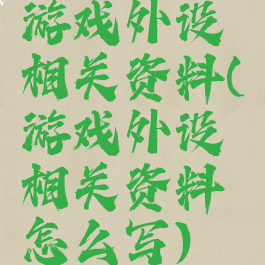 游戏外设
相关资料(
游戏外设
相关资料
怎么写)